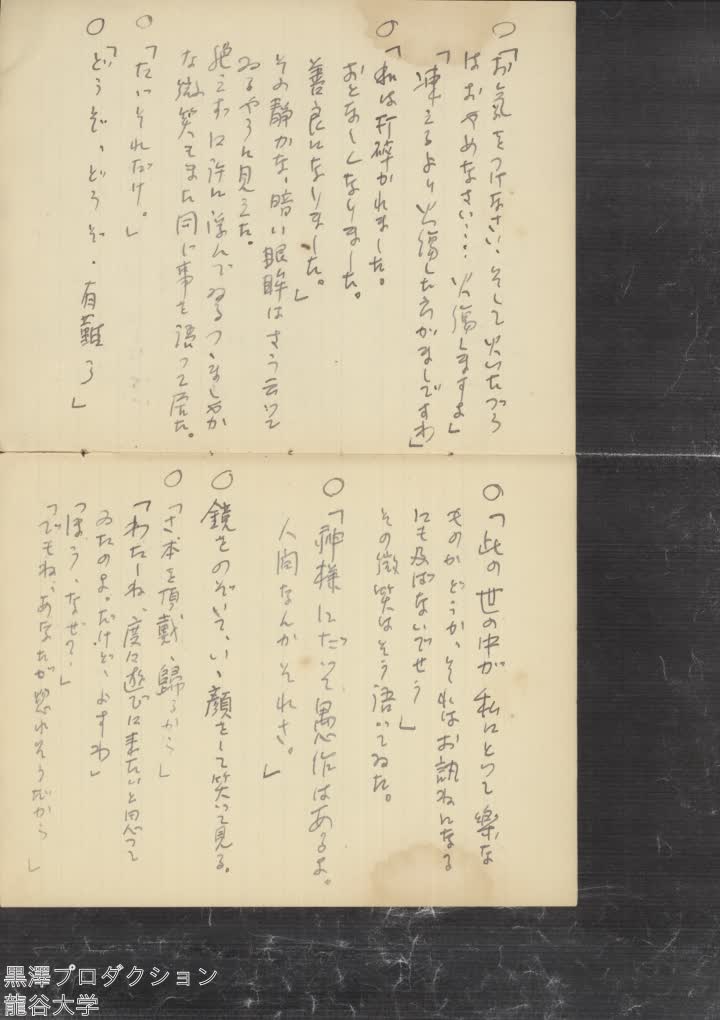 ○「お気をつけなさい、そして火いたづら
はおやめなさい…火傷しますよ」
「凍えるより火傷した方がましですわ」
○「私は打砕かれました。
おとなしくなりました。
善良になりました。」
その静かな、暗い眼眸はさう云って
ゐるやうに見えた。
絶えず口許に浮んでゐるつゝましやか
な微笑もまた同じ事を語って居た。
○「たゞそれだけ。」
○「どうぞ、どうぞ・有難う」
○「此の世の中が私にとって楽な
ものかどうか、それはお訊ねになる
にも及ばないでせう」
その微笑はそう語ってゐた。
○「神様にだって愚作はあるよ。
人間なんかそれさ。」
○鏡をのぞいて、いゝ顔をして笑って見る。
○「さ、本を頂戴、歸るから」
「わたしね、度々遊びに来たいと思って
ゐたのよ。だけど、よすわ」
「ほう、なぜて?」
「でもね、あなたが惚れそうだから」
黒澤プロダクション
龍谷大学